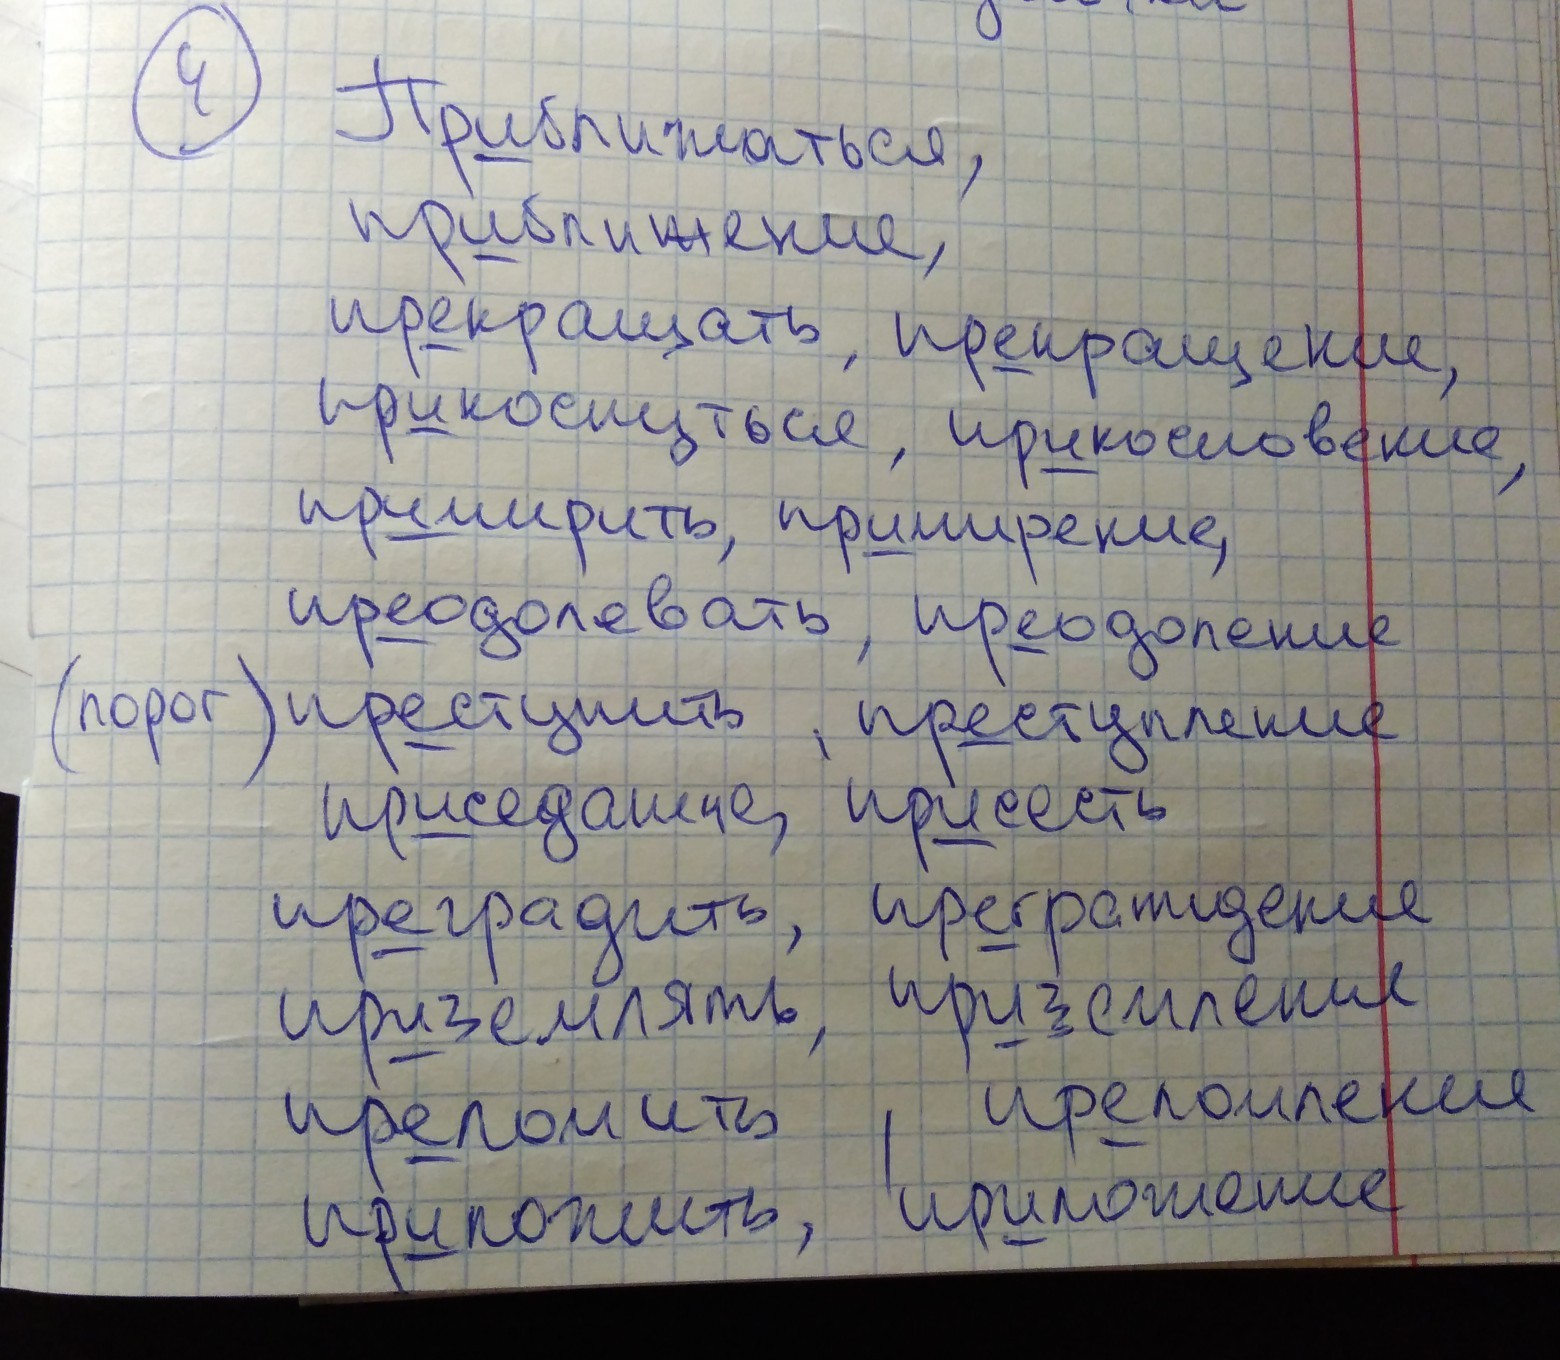 4 Приближаться,
приближение,
прекращать, прекращение,
прикоснуться, прикосновение,
примирить, примирение,
преодолевать, преодоление
(порог) преступить, преступление
приседание, присесть
преградить, преграждение
приземлять, приземление
преломить, преломление
приложить, приложение